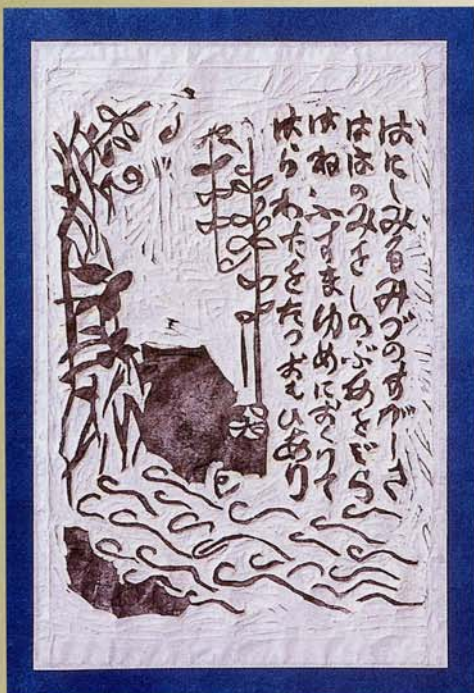 はにしみるみづのすがしさ
ははのみをしのぶあをぞら
はねふすまゆめにおくりて
はらわたをたつおもひあり